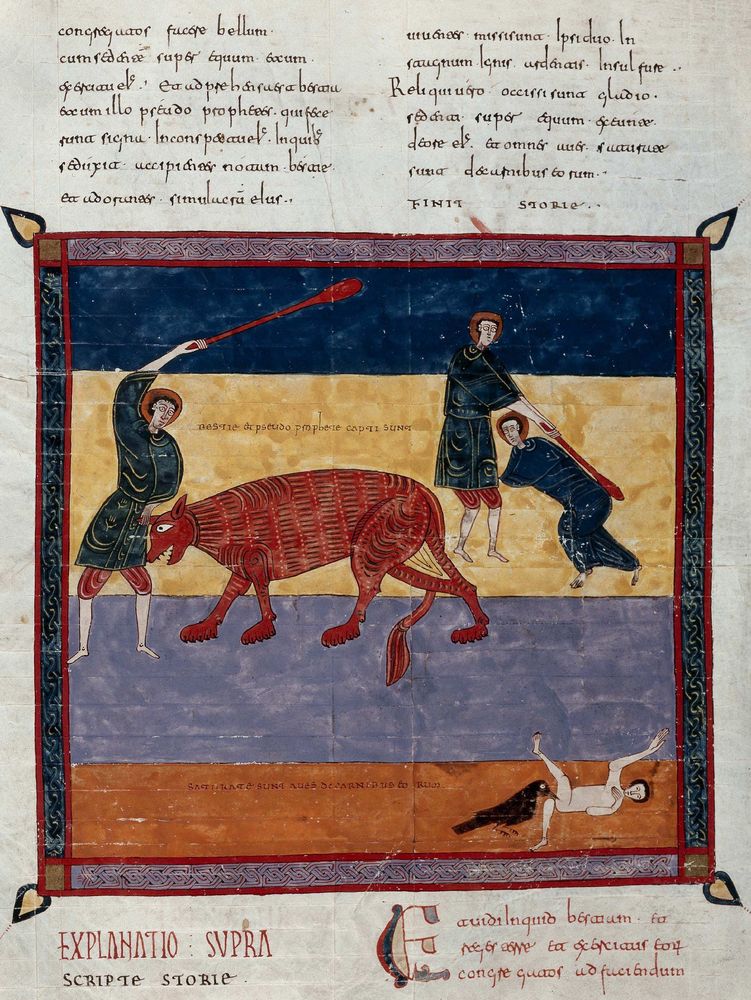 congregatos facere bellum.
cum sedente super equum. et cum
exercitu el. Et adprehensa est bestia
et cum illo pseudo propheta. qui fece
runt signa. In conspectu el. In quibus
seduxit. accipientes notam bestie.
et adorantes. simulacrum eius.
uiuentes missi sunt. Ipsi duo. In
stagnum Ignis ardentis. In sulfure.
Reliqui uero occissi sunt gladio.
sedentis super equum. exeunte.
de ore el. et omnes aues. saturate
sunt de carnibus eorum.
FINIT STORIE.
BESTIE et pseudo prophete capti sunt
SATURATE SUNT AUES DE CARNIBUS EORUM
EXPLANATIO : SUPRA
SCRIPTE STORIE.
Et uidi Inquid bestiam. et
reges terre et exercitus eor
congregatos ad faciendum